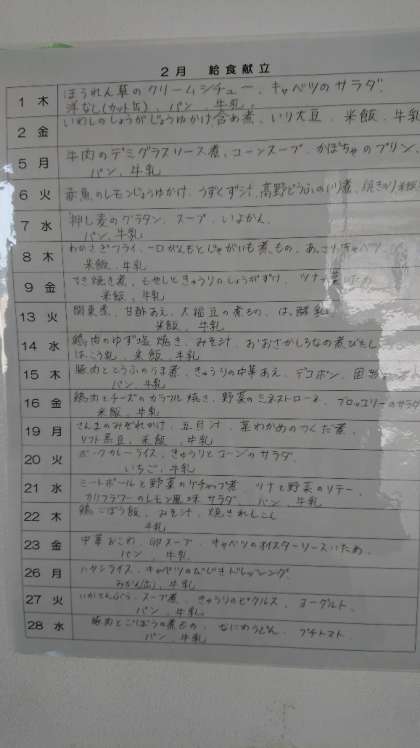 2月 給食献立
1 木 ほうれん草のクリームシチュー、キャベツのサラダ
洋なし(カット缶)、パン、牛乳
2 金 いわしのしょうがじょうゆかけ 含め煮、いり大豆、米飯、牛乳
5 月 牛肉のデミグラスソース煮、コーンスープ、かぼちゃのプリン、
パン、牛乳
6 火 赤魚のレモンじょうゆかけ、うすくず汁、高野どうふの煮、
7 水 押し麦のグラタン、スープ、いよかん、
パン、牛乳
8 木 わかさぎフライ、一口がんもとじゃがいも煮もの、あっさりキャベツ
米飯、牛乳
9 金 てき焼き煮、もやしときゅうりのしょうがづけ、ツナ
米飯、牛乳
13 火 関東煮、甘酢あえ、大福豆の煮もの、
米飯、牛乳
14 水 鶏肉のゆず塩焼き、みそ汁、おおさかしろなの煮びたし
米飯、牛乳
15 木 豚肉ととうふのうま煮、きゅうりの中華あえ、デコポン、
パン、牛乳
16 金 鶏肉とチーズのカラフル焼き、野菜のミネストローネ、ブロッコリーのサラダ
米飯、牛乳
19 月 さんまのみぞれかけ、五目汁、茎わかめのつくだ煮、
ソフト黒豆、米飯、牛乳
20 火 ポークカレーライス、きゅうりとコーンのサラダ、
いちご、牛乳
21 水 ミートボールと野菜のケチャップ煮 ツナと野菜のソテー
カリフラワーのレモン風味サラダ、パン、牛乳
22 木 鶏ごぼう飯、みそ汁、焼きれんこん
牛乳
23 金 中華おこわ、卵スープ、キャベツのオイスターソースいため、
パン、牛乳
26 月 ハヤシライス、キャベツのひじきドレッシング、
みかん(缶)、牛乳
27 火 いかてんぷら、スープ煮、きゅうりのピクルス、ヨーグルト、
パン、牛乳
28 水 豚肉とごぼうの煮もの、なにわうどん、プチトマト、
パン、牛乳